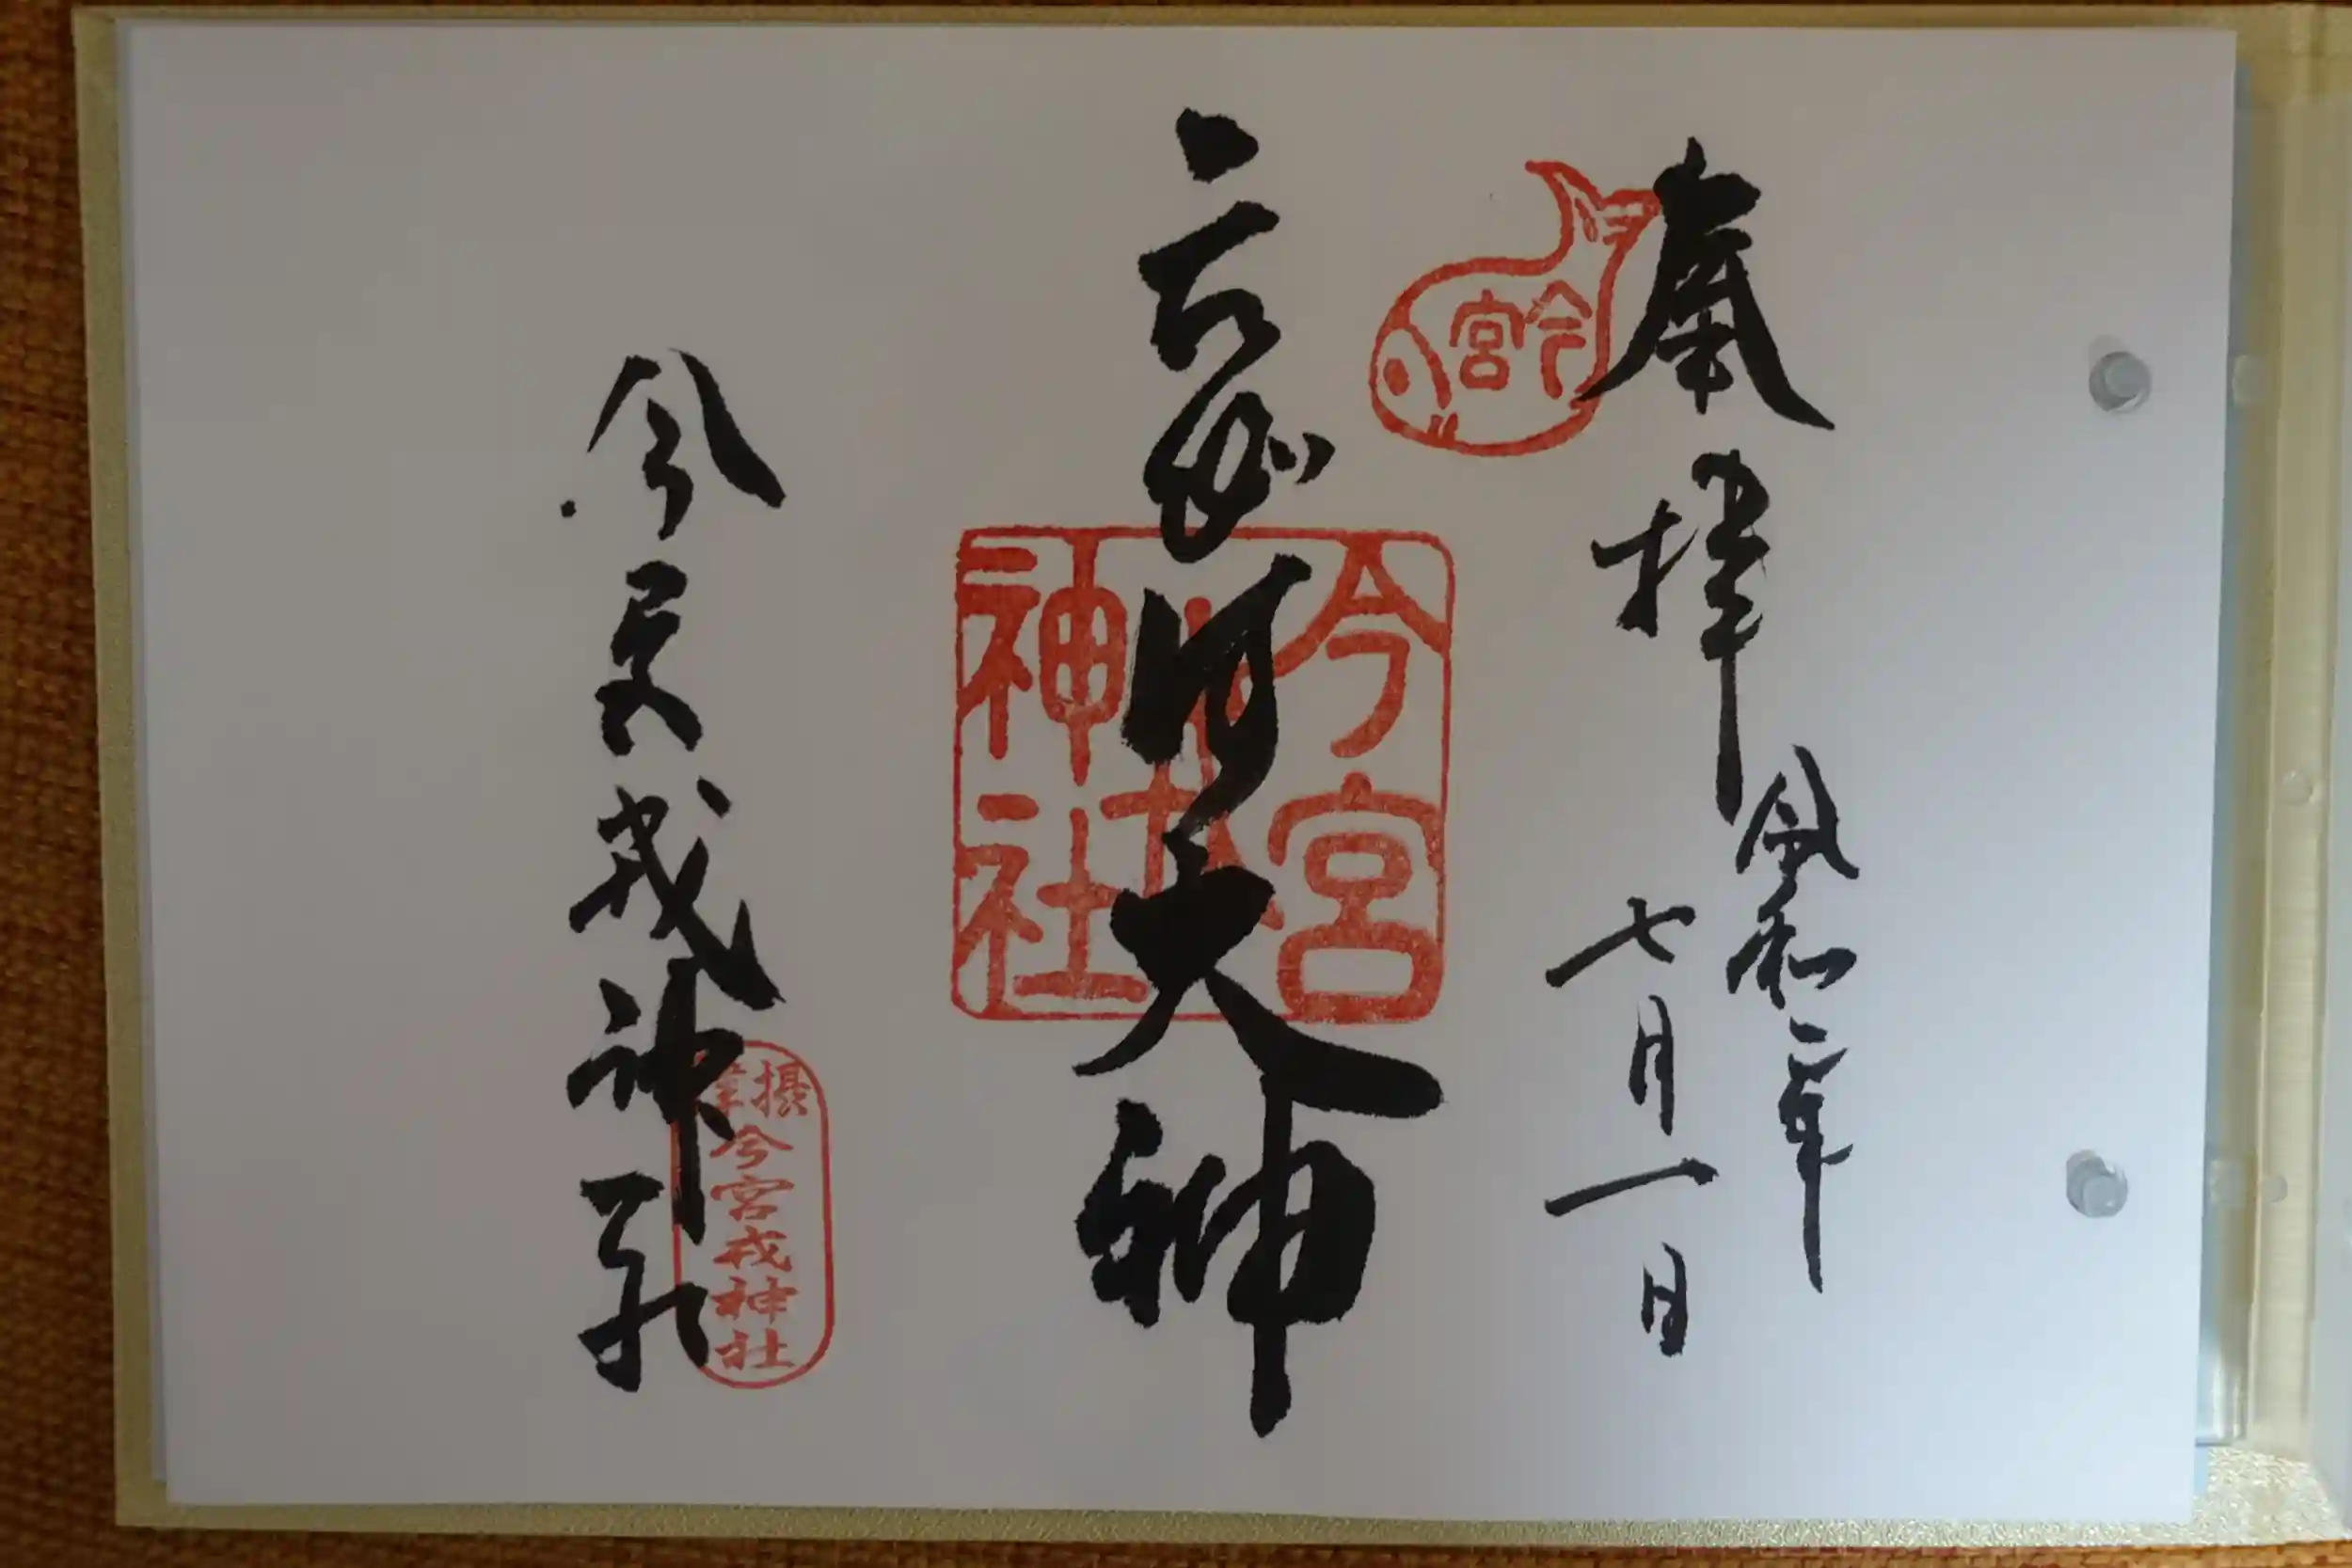 奉拝
令和二年
七月一日
今宮
えび須大神
今宮戎神社
今宮戎神社
摂津
今宮戎神社